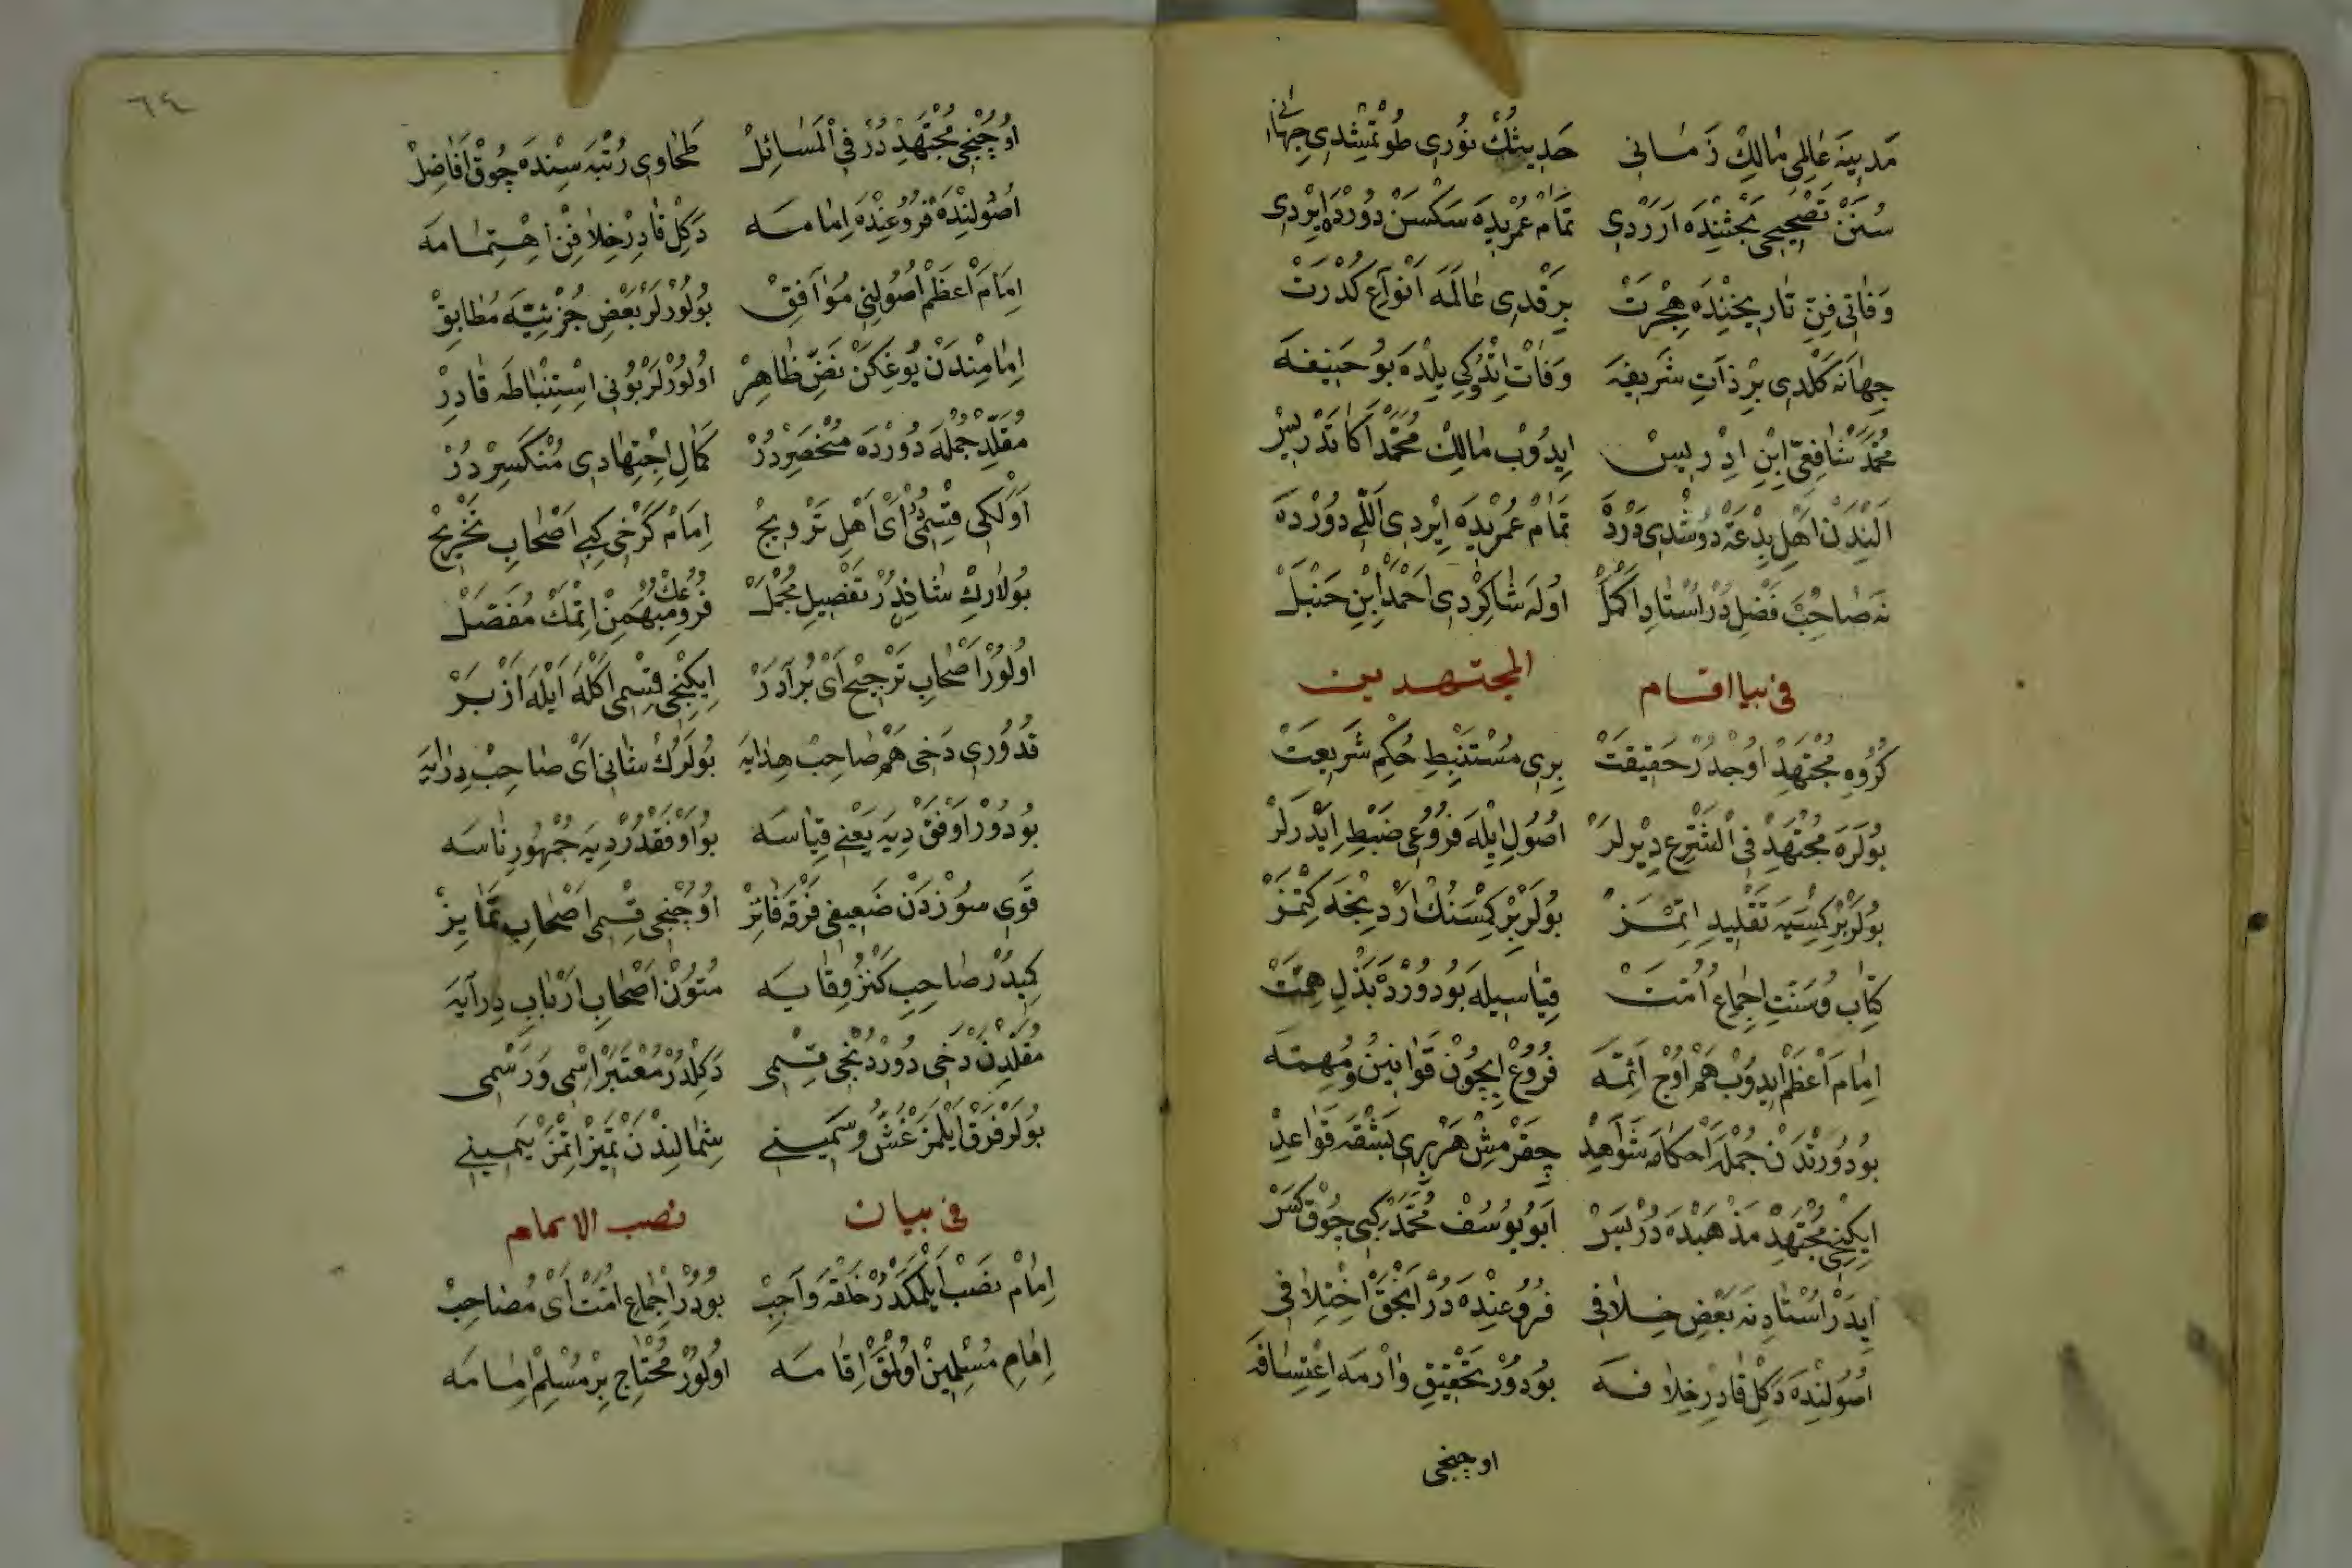 مَدِينَه عَالِمِى مَالِكْ زَمَانِى حَدِيثُكْ نُورِى طُوتْمِشْدِى جِهَانِى
سُنَنْ تَصْحِيحِى بَحْثِنْدَه اَرَرْدِى تَمَامْ عُمْرِيدَه سَكْسَنْ دُورْدَه اِيرْدِى
وَفَاتِى فِتَنْ تَارِيخِنْدَه هِجْرَتْ بِرَقْدِى عَالَمَه اَنْوَاعِ كُدْرَتْ
جِهَانَه كَلْدِى بِرْ ذَاتِ شَرِيفَه وَفَاتْ اِتْدُوكِى يِلْدَه بُو حَنِيفَه
مُحَمَّدْ شَافِعِى اِبْنِ اِدْرِيسْ اِيدُوبْ مَالِكْ مُحَمَّدْ اَكَا تَدْرِيسْ
اَلِنْدَنْ اَهْلِ بِدْعَتْ دُوشْدِى دَرْدَه تَمَامْ عُمْرِيدَه اِيرْدِى اَللِّى دُورْدَه
نَه صَاحِبْ فَضِلْ دُرْ اُسْتَادِ اَكْمَلْ اُولَه شَاكِرْدِى اَحْمَدْ اِبْنِ حَنْبَلْ
فى بيا اقسام المجتهدين
كُرُوهِ مُجْتَهِدْ اُوچْدُرْ حَقِيقَتْ بِرِى مُسْتَنْبِطِ حُكْمِ شَرِيعَتْ
بُولَرَه مُجْتَهِدْ فِى الشَّرْعِ دِيرْلَرْ اُصُولْ اِيلَه فُرُوعِى ضَبْطْ اِيدَرْلَرْ
بُولَرْ بِرْ كِمْسَيَه تَقْلِيدِ اِتْمَزْ بُولَرْ بِرْ كِمْسَنُكْ اَرْدِنْجَه كِتْمَزْ
كِتَابُ وُ سُنَّتِ اِجْمَاعِ اُمَّتْ قِيَاسِيلَه بُو دُورْدَه بَذْلِ هِمَّتْ
اِمَامِ اَعْظَمْ اِيدُوبْ هَمْ اُوچْ اَئِمَّه فُرُوعْ اِيچُونْ قَوَانِينُ وُ مُهِمَّه
بُو دُورْتْدَنْ جُمْلَه اَحْكَامَه شَوَاهِدْ چِقَرْمِشْ هَرْ بِرِى بَشْقَه قَوَاعِدْ
اِيكِنْجِى مُجْتَهِدْ مَذْهَبْدَه دُرْ بَسْ اَبُو يُوسُفْ مُحَمَّدْ كِبِى چُوقْ كَسْ
اِيدَرْ اُسْتَادِنَه بَعْضِ خِلَافِى فُرُوعِنْدَه دُرْ اَنْجَقْ اِخْتِلَافِى
اُصُولِنْدَه دَكِلْ قَادِرْ خِلَافَه بُو دُورْ تَحْقِيقْ وَارْمَه اِعْتِسَافَه
اوچنجى
٦٤
اُوچُنْجِى مُجْتَهِدْ دُرْ فِى الْمَسَائِلْ طَحَاوِى رُتْبَه سِنْدَه چُوقْ اَفَاضِلْ
اُصُولِنْدَه فُرُوعِنْدَه اِمَامَه دَكِلْ قَادِرْ خِلَافِنْ اِهْتِمَامَه
اِمَامْ اَعْظَمْ اُصُولِنِى مُوَافِقْ بُولُورْلَرْ بَعْضِ جُزْئِيَّه مُطَابِقْ
اِمَامِنْدَنْ يُوغِكَنْ نَصِّ ظَاهِرْ اُولُورْلَرْ بُونِى اِسْتِنْبَاطَه قَادِرْ
مُقَلِّدْ جُمْلَه دُورْدَه مُنْحَصِرْدُرْ كَمَالِ اِجْتِهَادِى مُنْكَسِرْ دُرْ
اَوَّلْكِى قِسْمِدُرْ اَىْ اَهْلِ تَرْوِيجْ اِمَامْ كَرْخِى كِبِى اَصْحَابِ تَخْرِيجْ
بُولَارِكْ شَانِدِرْ تَفْصِيلِ مُجْمَلْ فُرُوعِكْ مُبْهَمِنْ اِتْمَكْ مُفَصَّلْ
اُولُورْ اَصْحَابِ تَرْجِيحْ اَىْ بُرَادَرْ اِيكِنْجِى قِسْمِى اَكْلَه اَيْلَه اَزْبَرْ
قُدُورِى دَخِى هَمْ صَاحِبْ هِدَايَه بُولَرُكْ شَانِى اَىْ صَاحِبْ دِرَايَه
بُو دُورْ اَوْفَقْ دِيَه يَعْنِى قِيَاسَه بُو اَوْفَقْدُرْ دِيَه جُمْهُورِ نَاسَه
قَوِى سُوزْدَنْ ضَعِيفِى فَرْقَه فَائِزْ اُوچُنْجِى قِسْمِى اَصْحَابِ تَمَايِزْ
كِبِدُرْ صَاحِبِ كَنْزُ وِقَايَه مُتُونْ اَصْحَابِ اَرْبَابِ دِرَايَه
مُقَلِّدِنْ دَخِى دُورْدُنْجِى قِسْمِى دَكِلْدُرْ مُعْتَبَرْ اِسْمِى وَ رَسْمِى
بُولَرْ فَرْقْ اَيْلَمَزْ غَثُّ وُ سَمِينِى شِمَالِنْدَنْ تَمَيِّزْ اِتْمَزْ يَمِينِى
فى بيان نصب الامام
اِمَامْ نَصْبْ اَيْلَمَكْدُرْ خَلْقَه وَاجِبْ بُودُرْ اِجْمَاعِ اُمَّتْ اَىْ مُصَاحِبْ
اِمَامِ مُسْلِمِينْ اُولْمَقْ اِقَامَه اُولُورْ مُحْتَاجْ بِرْ مُسْلِمْ اِمَامَه